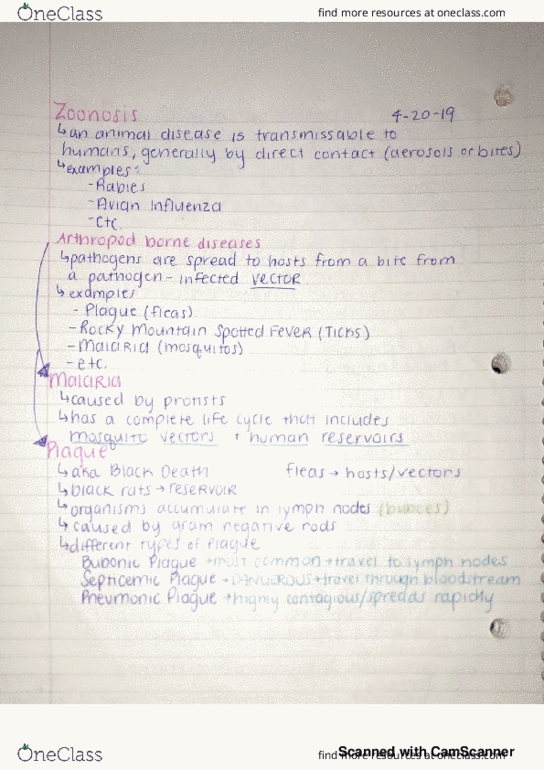 OneClass
find more resources at oneclass.com
Zoonosis
4-20-19
↳an animal disease is transmissable to
humans, generally by direct contact (aerosols or bites)
↳examples:
-Rabies
-Avian Influenza
-Etc.
Arthropod borne diseases
↳pathogens are spread to hosts from a bite from
a pathogen-infected vector
↳examples
- Plague (fleas)
-Rocky Mountain Spotted Fever (Ticks)
-Malaria (mosquitos)
-etc.
Malaria
↳caused by protists
↳has a complete life cycle that includes
mosquito vectors + human reservoirs
Plague
↳aka Black Death fleas→hosts/vectors
↳black rats→reservoir
↳organisms accumulate in lymph nodes (buboes)
↳caused by gram negative rods
↳different types of Plague
Bubonic Plague →most common→travel to lymph nodes
Septicemic Plague →DANGEROUS→travel through bloodstream
Pneumonic Plague →highly contagious/spreads rapidly
OneClass
find more resources at oneclass.com
Scanned with CamScanner